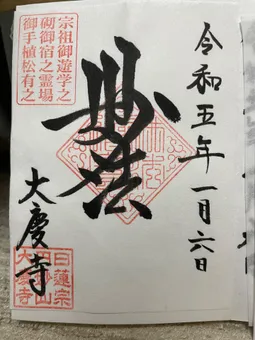 令和五年一月六日
宗祖御遊学之
砌御宿之霊場
御手植松有之
妙法
大慶寺
日蓮宗
大慶寺